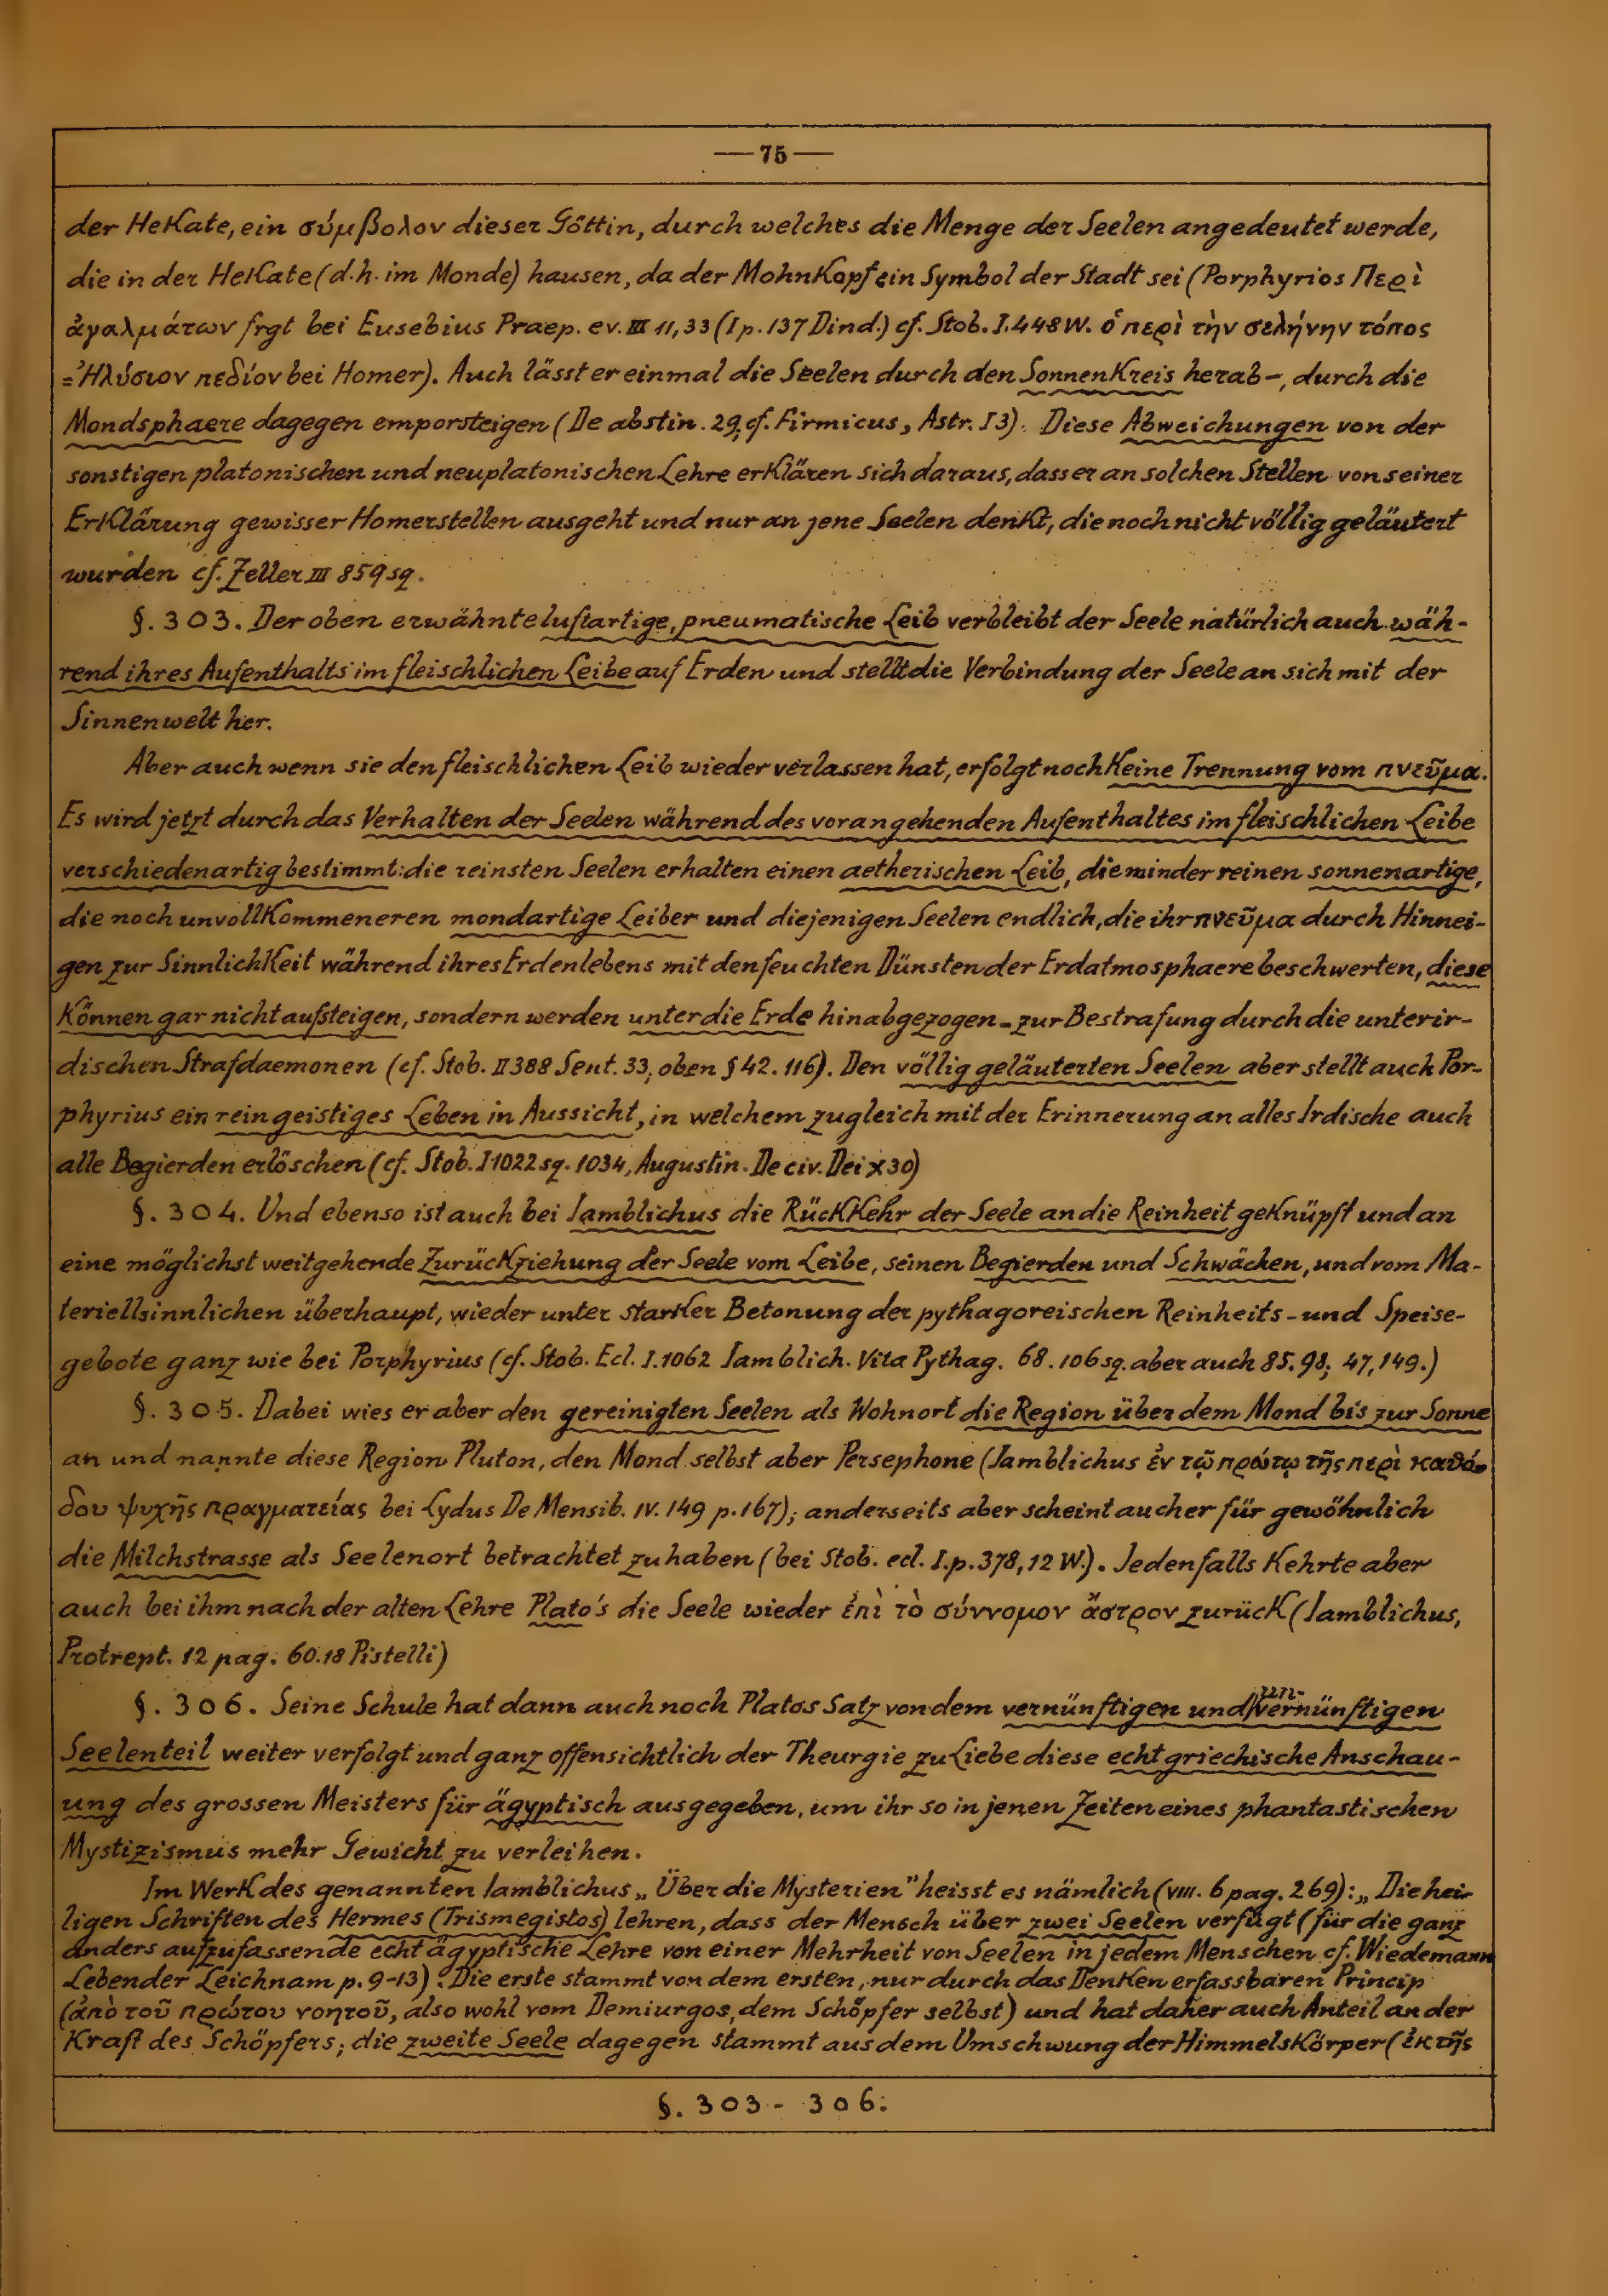 — 75 —
der Hekate, ein σύμβολον dieser Göttin, durch welches die Menge der Seelen angedeutet werde,
die in der Hekate (d.h. im Monde) hausen, da der Mohnkopf ein Symbol der Stadt sei (Porphyrios Περὶ
ἀγαλμάτων frgt bei Eusebius Praep. ev. III 11,33 (I p. 137 Dind.) cf. Stob. I. 448 W. ὁ περὶ τὴν σελήνην τόπος
= Ἠλύσιον πεδίον bei Homer). Auch lässt er einmal die Seelen durch den Sonnenkreis herab-, durch die
Mondsphaere dagegen emporsteigen (De abstin. 29, cf. Firmicus, Astr. I 3). Diese Abweichungen von der
sonstigen platonischen und neuplatonischen Lehre erklären sich daraus, dass er an solchen Stellen von seiner
Erklärung gewisser Homerstellen ausgeht und nur an jene Seelen denkt, die noch nicht völlig geläutert
wurden cf. Zeller III 859 sq.
§. 303. Der oben erwähnte luftartige, pneumatische Leib verbleibt der Seele natürlich auch wäh-
rend ihres Aufenthalts im fleischlichen Leibe auf Erden und stellt die Verbindung der Seele an sich mit der
Sinnenwelt her.
Aber auch wenn sie den fleischlichen Leib wieder verlassen hat, erfolgt noch keine Trennung vom πνεῦμα.
Es wird jetzt durch das Verhalten der Seelen während des vorangehenden Aufenthaltes im fleischlichen Leibe
verschiedenartig bestimmt: die reinsten Seelen erhalten einen aetherischen Leib, die minder reinen sonnenartige,
die noch unvollkommeneren mondartige Leiber und diejenigen Seelen endlich, die ihr πνεῦμα durch Hinnei-
gen zur Sinnlichkeit während ihres Erdenlebens mit den feuchten Dünsten der Erdatmosphaere beschwerten, diese
können gar nicht aufsteigen, sondern werden unter die Erde hinabgezogen - zur Bestrafung durch die unterir-
dischen Strafdaemonen (cf. Stob. II 388 Sent. 33, oben § 42. 116). Den völlig geläuterten Seelen aber stellt auch Por-
phyrius ein rein geistiges Leben in Aussicht, in welchem zugleich mit der Erinnerung an alles Irdische auch
alle Begierden erlöschen (cf. Stob. I 1022 sq. 1034, Augustin. De civ. Dei X 30)
§. 304. Und ebenso ist auch bei Iamblichus die Rückkehr der Seele an die Reinheit geknüpft und an
eine möglichst weitgehende Zurückziehung der Seele vom Leibe, seinen Begierden und Schwächen, und vom Ma-
teriellsinnlichen überhaupt, wieder unter starker Betonung der pythagoreischen Reinheits- und Speise-
gebote ganz wie bei Porphyrius (cf. Stob. Ecl. I. 1062 Iamblich. Vita Pythag. 68. 106 sq. aber auch 85. 98; 47, 149.)
§. 305. Dabei wies er aber den gereinigten Seelen als Wohnort die Region über dem Mond bis zur Sonne
an und nannte diese Region Pluton, den Mond selbst aber Persephone (Iamblichus ἐν τῷ πρώτῳ τῆς περὶ καθό-
δου ψυχῆς πραγματείας bei Lydus De Mensib. IV. 149 p. 167); anderseits aber scheint auch er für gewöhnlich
die Milchstrasse als Seelenort betrachtet zu haben (bei Stob. ecl. I. p. 378, 12 W.). Jedenfalls kehrte aber
auch bei ihm nach der alten Lehre Plato's die Seele wieder ἐπὶ τὸ σύννομον ἄστρον zurück (Iamblichus,
Protrept. 12 pag. 60.18 Pistelli)
§. 306. Seine Schule hat dann auch noch Platos Satz von dem vernünftigen und unvernünftigen
Seelenteil weiter verfolgt und ganz offensichtlich der Theurgie zu Liebe diese echt griechische Anschau-
ung des grossen Meisters für ägyptisch ausgegeben, um ihr so in jenen Zeiten eines phantastischen
Mystizismus mehr Gewicht zu verleihen.
Im Werk des genannten Iamblichus „Über die Mysterien" heisst es nämlich (VIII. 6 pag. 269): „Die hei-
ligen Schriften des Hermes (Trismegistos) lehren, dass der Mensch über zwei Seelen verfügt (für die ganz
anders aufzufassende echt ägyptische Lehre von einer Mehrheit von Seelen in jedem Menschen cf. Wiedemann
Lebender Leichnam p. 9-13). Die erste stammt von dem ersten, nur durch das Denken erfassbaren Princip
(ἀπὸ τοῦ πρώτου νοητοῦ, also wohl vom Demiurgos, dem Schöpfer selbst) und hat daher auch Anteil an der
Kraft des Schöpfers; die zweite Seele dagegen stammt aus dem Umschwung der Himmelskörper (ἐκ τῆς
§. 303 - 306.